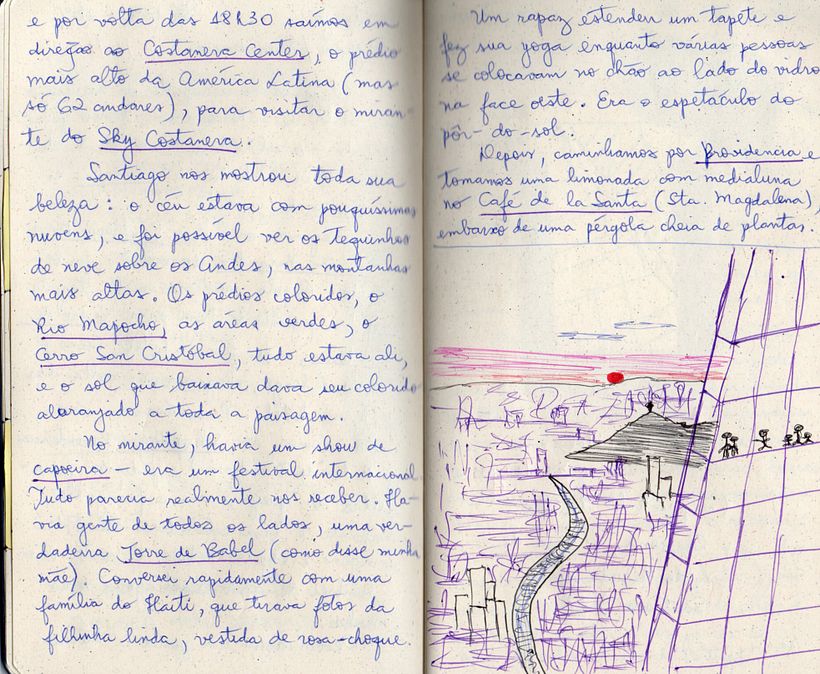 e por volta das 18h30 saímos em
direção ao Costanera Center, o prédio
mais alto da América Latina (mas
só 62 andares), para visitar o miran-
te do Sky Costanera.
Santiago nos mostrou toda sua
beleza: o céu estava com pouquíssimas
nuvens, e foi possível ver os tequinhos
de neve sobre os Andes, nas montanhas
mais altas. Os prédios coloridos, o
Rio Mapocho, as áreas verdes, o
Cerro San Cristóbal, tudo estava ali,
e o sol que baixava dava seu colorido
alaranjado a toda a paisagem.
No mirante, havia um show de
capoeira – era um festival internacional.
Tudo parecia realmente nos receber. Ha-
via gente de todos os lados, uma ver-
dadeira Torre de Babel (como disse minha
mãe). Conversei rapidamente com uma
família do Haiti, que tirava fotos da
filhinha linda, vestida de rosa-choque.
Um rapaz estendeu um tapete e
fez sua yoga enquanto várias pessoas
se colocavam no chão ao lado do vidro
na face oeste. Era o espetáculo do
pôr-do-sol.
Depois, caminhamos por Providencia e
tomamos uma limonada com medialuna
no Café de la Santa (Sta. Magdalena),
embaixo de uma pérgola cheia de plantas.